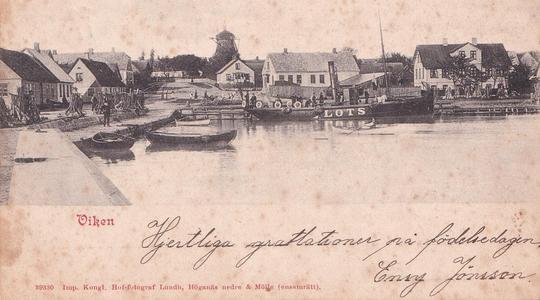 LOTS
Viken
Hjertliga grattationer på födelsedagen
Eney Jönsson.
39330 Imp. Kongl. Hof-fotograf Lundh, Höganäs nedre & Mölle (ensamrätt).